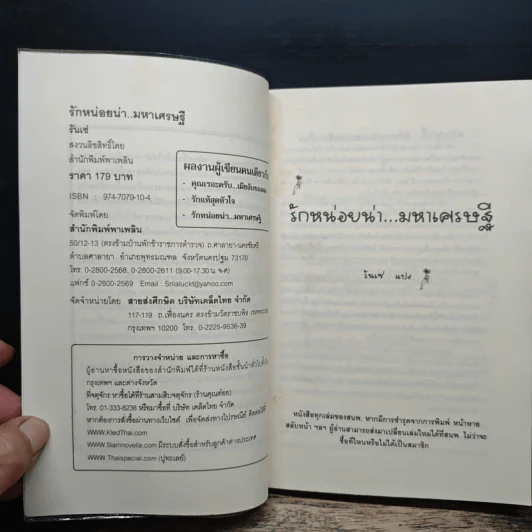 รักหน่อยน่า..มหาเศรษฐี
รันเซ่
สงวนลิขสิทธิ์โดย
สำนักพิมพ์พาเพลิน
ราคา 179 บาท
ISBN : 974-7079-10-4
จัดพิมพ์โดย
ผลงานผู้เขียนคนเดียวกัน
- คุณเรอะครับ...เมียลับของผม
- รักแท้สุดหัวใจ
- รักหน่อยน่า...มหาเศรษฐี
สำนักพิมพ์พาเพลิน
50/12-13 (ตรงข้ามบ้านพักข้าราชการตำรวจ) ถ.ศาลายา-นครชัยศรี
ตำบลศาลายา อำเภอพุทธมณฑล จังหวัดนครปฐม 73170
โทร. 0-2800-2568, 0-2800-2611 (9.00-17.30 น. จ-ศ)
แฟกซ์ 0-2800-2569 Email : Srilaluckt@yahoo.com
จัดจำหน่ายโดย สายส่งศึกษิต บริษัทเคล็ดไทย จำกัด
117-119 ถ.เฟื่องนคร ตรงข้ามวัดราชบพิธ
กรุงเทพฯ 10200 โทร. 0-2225-9536-39
การวางจำหน่าย และการหาซื้อ
ผู้อ่านหาซื้อหนังสือของสำนักพิมพ์ได้ที่ร้านหนังสือชั้นนำทั่วไป ทั้งใน
กรุงเทพฯ และต่างจังหวัด
ที่จตุจักร หาซื้อได้ที่ร้านสามสิบจตุจักร (ร้านคุณต๋อย)
โทร. 01-333-8238 หรือมาซื้อที่ บริษัท เคล็ดไทย จำกัด
หากต้องการสั่งซื้อผ่านทางเว็บไซต์ เพื่อจัดส่งทางไปรษณีย์ ติดต่อได้ที่
www.KledThai.com
www.Siamnovella.com มีระบบสั่งซื้อสำหรับลูกค้าต่างประเทศ
www.Thaispecial.com (ปูทะเลย์)
รักหน่อยน่า...มหาเศรษฐี
รันเซ่ แปล
หนังสือทุกเล่มของสนพ. หากมีการชำรุดจากการพิมพ์ หน้าหาย
สลับหน้า ฯลฯ ผู้อ่านสามารถส่งมาเปลี่ยนเล่มใหม่ได้ที่สนพ. ไม่ว่าจะ
ซื้อที่ไหนหรือไม่ได้เป็นสมาชิก